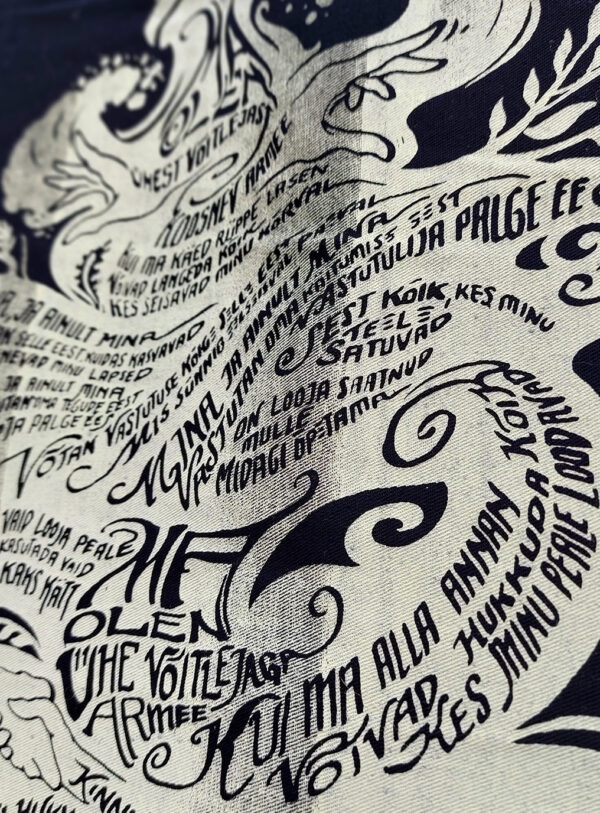 MA
OLEN
ÜHEST VÕITLEJAST
KOOSNEV ARMEE
KUI MA KÄED RÜPPE LASEN
VÕIVAD LANGEDA KÕIK
KES SEISAVAD MINU KÕRVAL
JA AINULT MINA
SELLE EEST, KUIDAS KASVAVAD
MINU LAPSED
JA AINULT MINA
OMA TEGUDE EEST
JA PALGE EES
VÕTAN VASTUTUSE KÕIGE SELLE EEST
MIS SÜNNIB
MINA, JA AINULT MINA
VASTUTAN OMA KÄITUMISE EEST
VASTUTULIJA PALGE EES
SEST KÕIK, KES MINU
TEELE
SATUVAD
ON LOOJA SAATNUD
MULLE
MIDAGI ÕPETAMA
VAID LOOJA PEALE
KASUTADA VAID
KAKS KÄTT
MA
OLEN
ÜHE VÕITLEJAGA
ARMEE
KUI MA ALLA ANNAN
VÕIVAD HUKKUDA KÕIK
KES MINU PEALE LOODAVAD